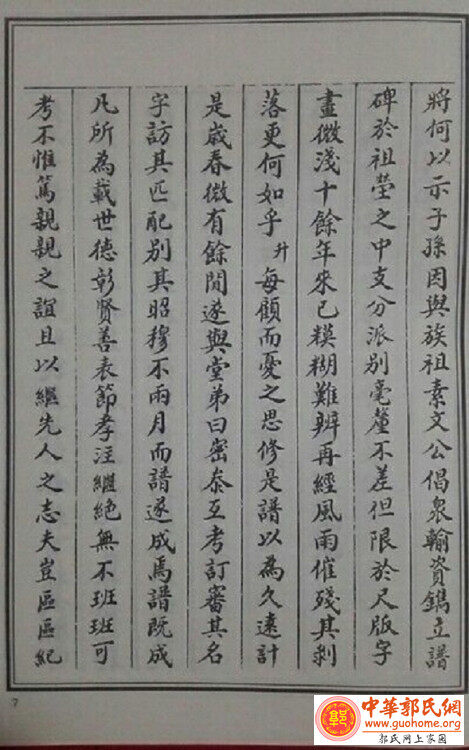 將何以示子孫因與族祖素文公倡衆輸資鐫立譜
碑於祖塋之中支分派別毫釐不差但限於尺版字
畫微淺十餘年來已糢糊難辨再經風雨催殘其剝
落更何如乎升每顧而憂之思修是譜以為久遠計
是歲春微有餘閒遂與堂弟曰密泰互考訂審其名
字訪其匹配別其昭穆不兩月而譜遂成焉譜既成
凡所為載世德彰賢善表節孝注繼絶無不班班可
考不惟篤親親之誼且以繼先人之志夫豈區區紀
7
中華郭氏網
www.guohome.org
郭氏网上家園